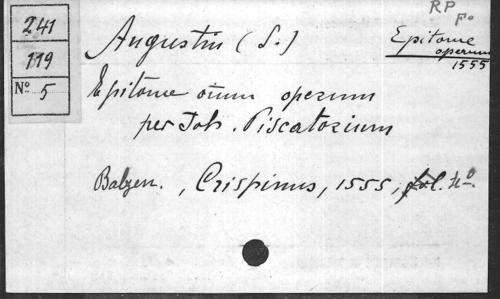 241
119
Nº 5
Augustin (S.)
RP
Fº
Epitome
operum
1555
Epitome oium operum
per Joh. Piscatorium
Balzen., Crispinus, 1555, fol. 4º.